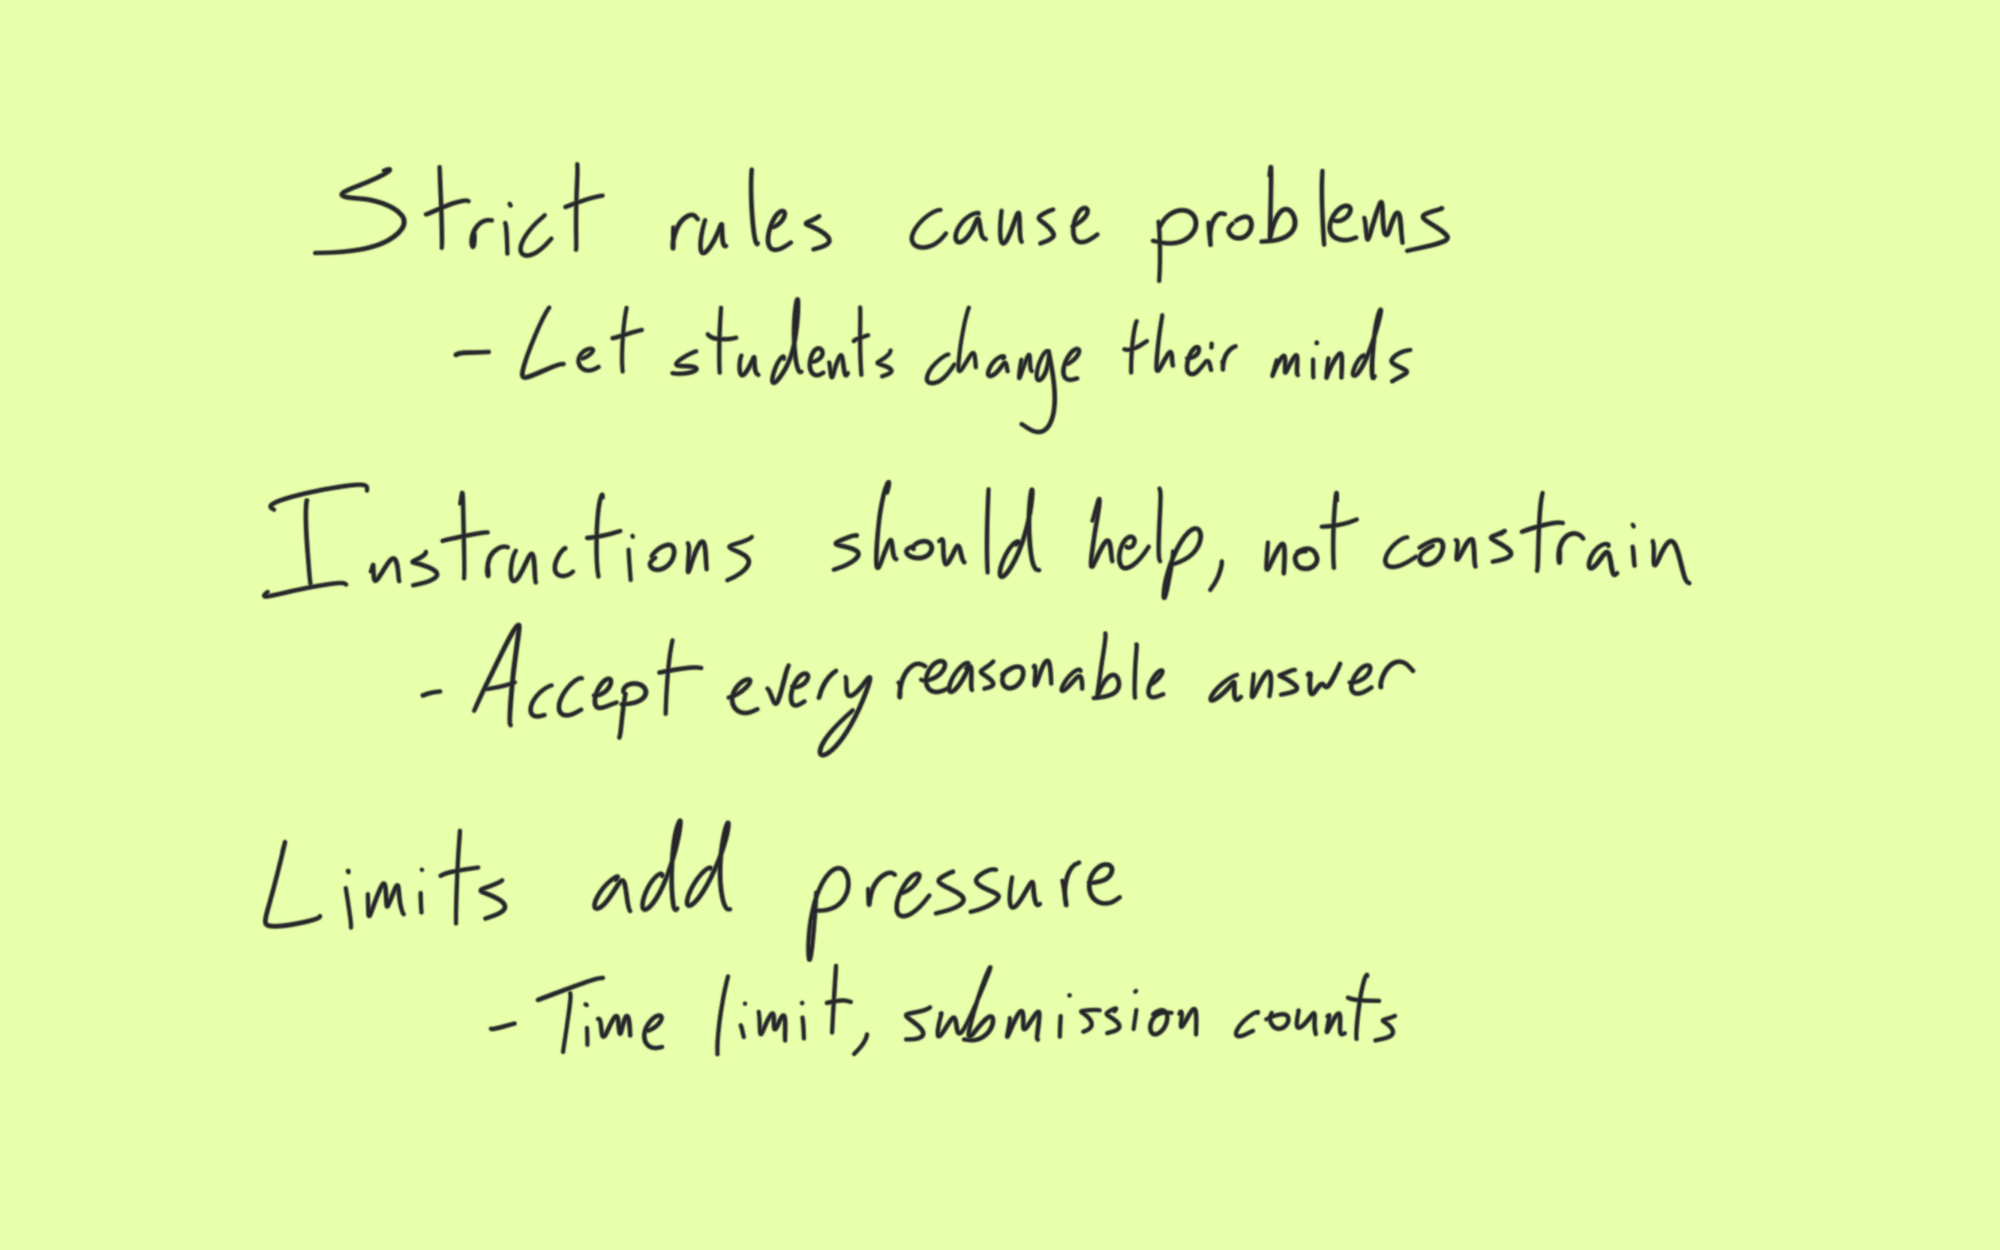 Strict rules cause problems
- Let students change their minds
Instructions should help, not constrain
- Accept every reasonable answer
Limits add pressure
- Time limit, submission counts